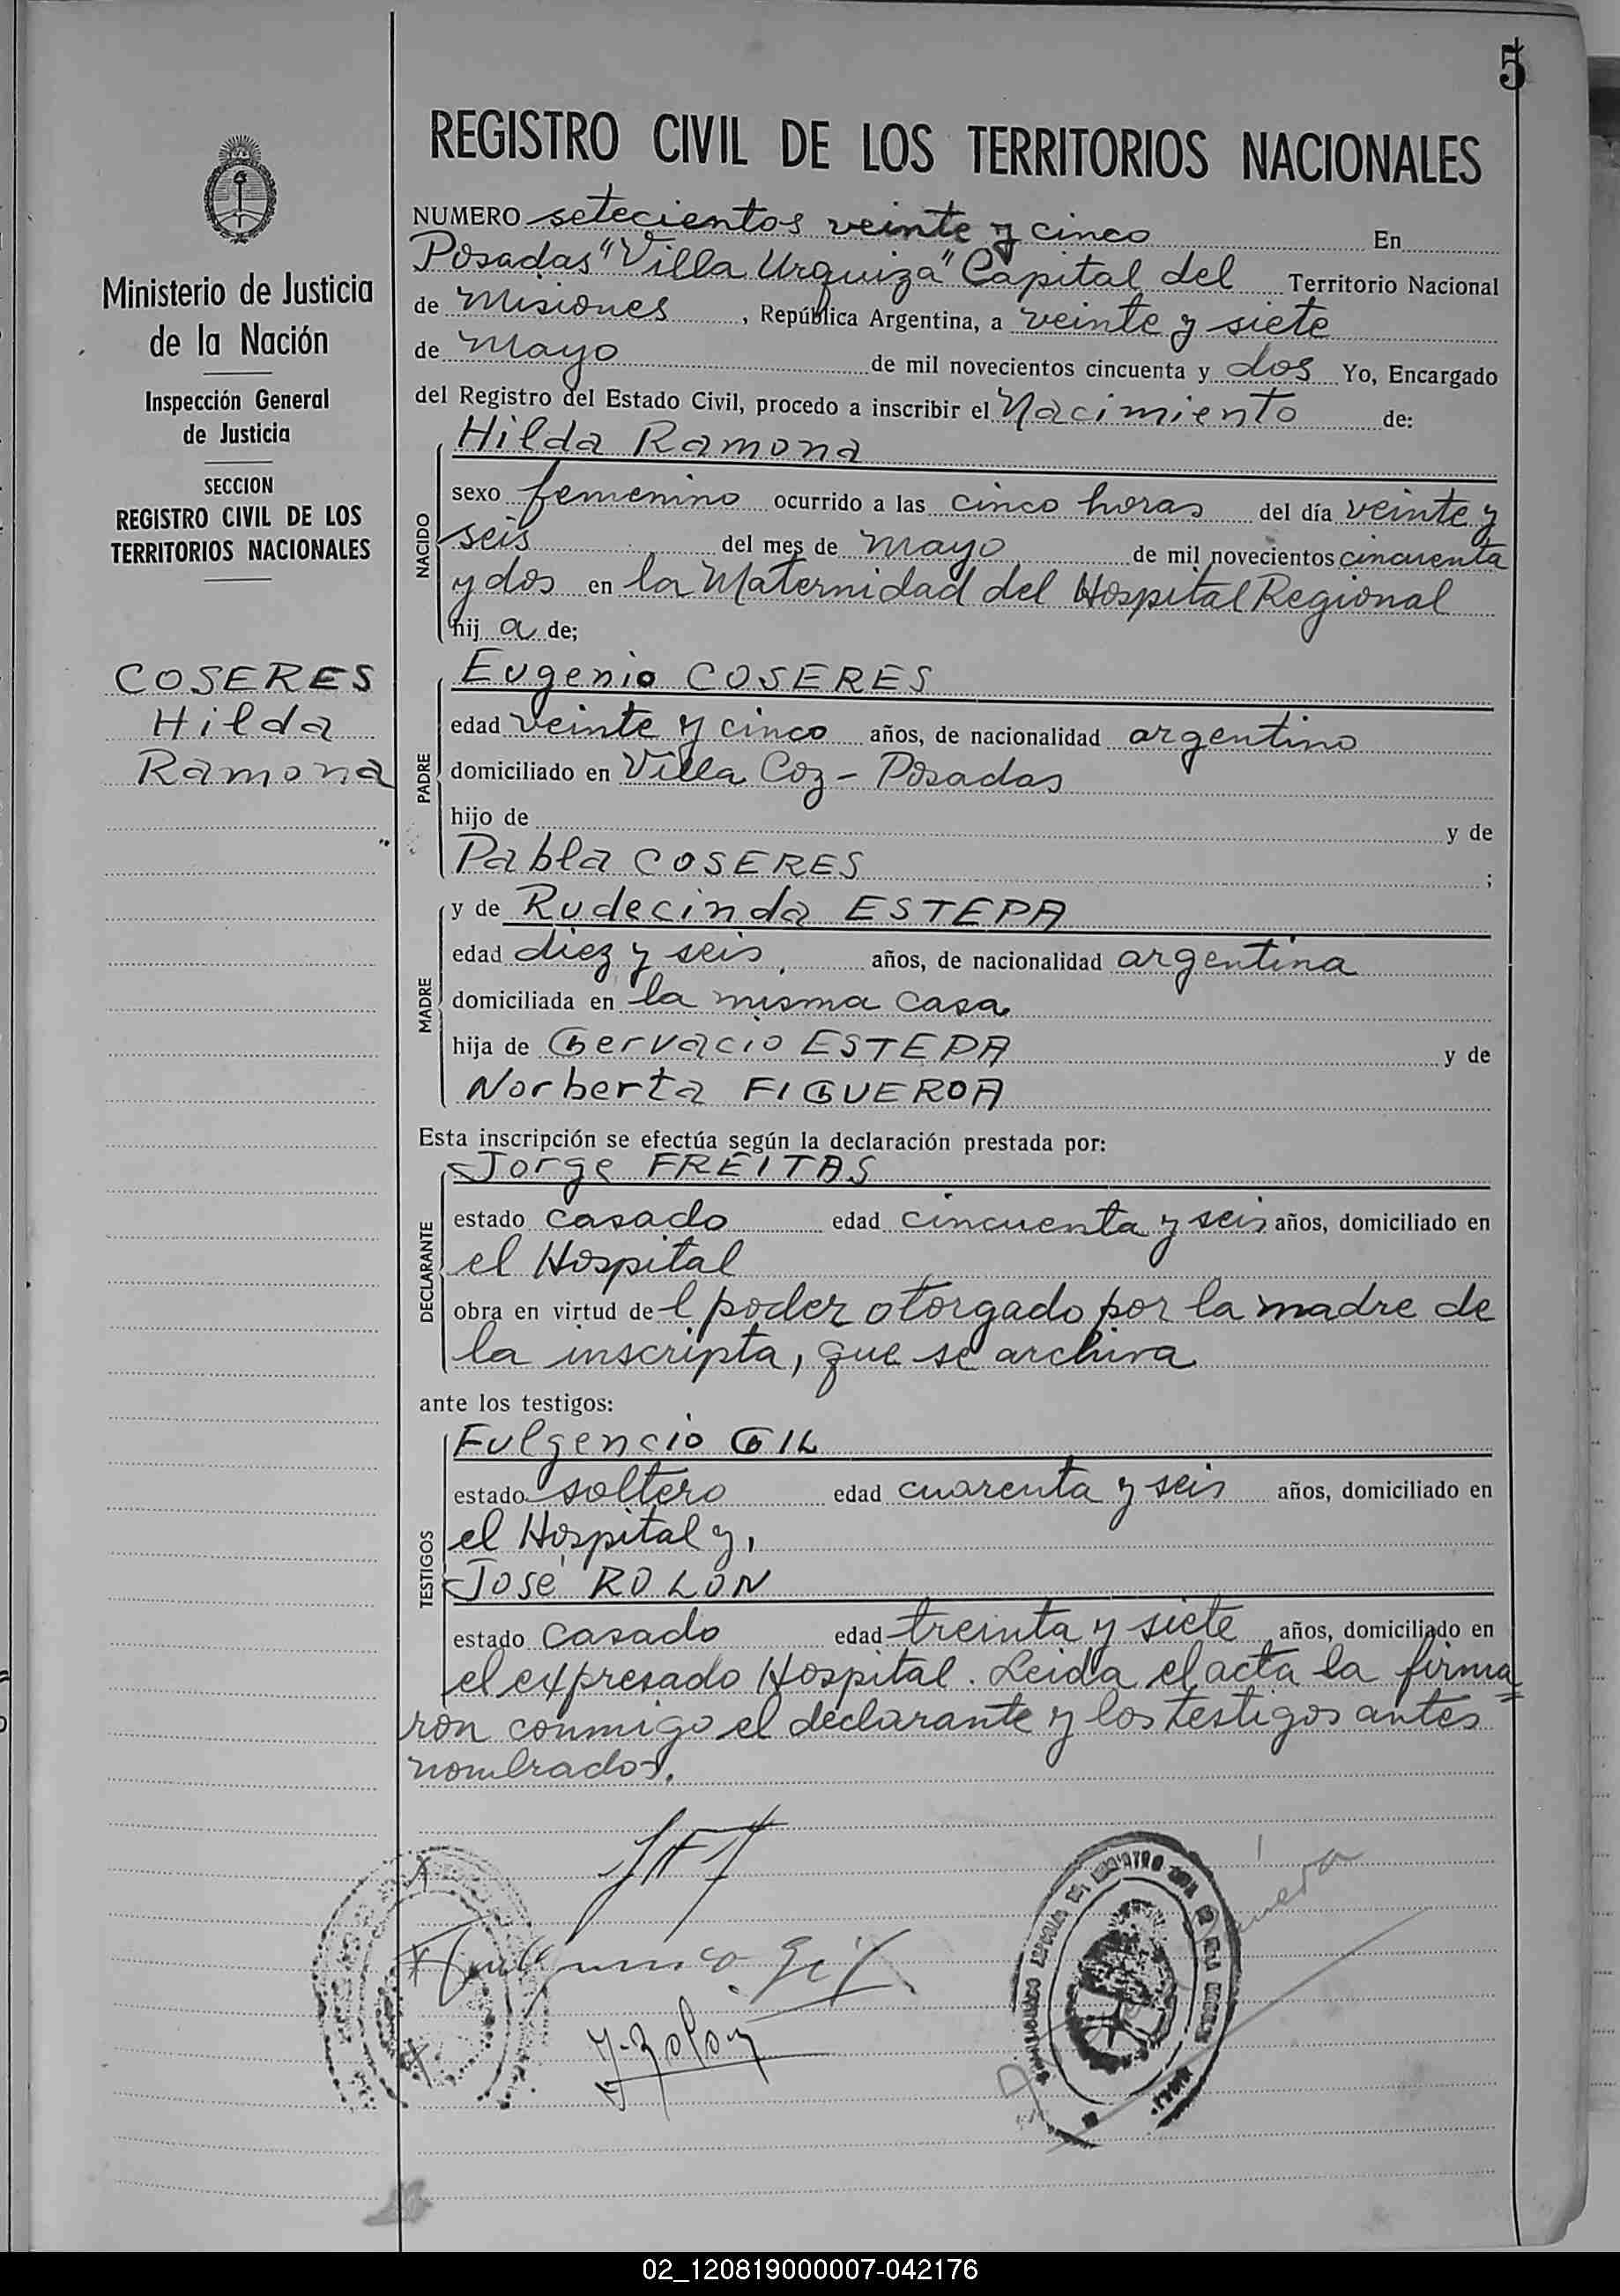 5
REGISTRO CIVIL DE LOS TERRITORIOS NACIONALES
Ministerio de Justicia
de la Nación
Inspección General
de Justicia
SECCION
REGISTRO CIVIL DE LOS
TERRITORIOS NACIONALES
COSERES
Hilda
Ramona
NUMERO setecientos veinte y cinco En
Posadas "Villa Urquiza" Capital del Territorio Nacional
de Misiones, República Argentina, a veinte y siete
de Mayo de mil novecientos cincuenta y dos Yo, Encargado
del Registro del Estado Civil, procedo a inscribir el Nacimiento de:
NACIDO
Hilda Ramona
sexo femenino ocurrido a las cinco horas del día veinte y
seis del mes de mayo de mil novecientos cincuenta
y dos en la Maternidad del Hospital Regional
hij a de;
PADRE
Eugenio COSERES
edad veinte y cinco años, de nacionalidad argentino
domiciliado en Villa Coz - Posadas
hijo de y de
Pabla COSERES ;
MADRE
y de Rudecinda ESTEPA
edad diez y seis, años, de nacionalidad argentina
domiciliada en la misma casa
hija de Gervacio ESTEPA y de
Norberta FIGUEROA
Esta inscripción se efectúa según la declaración prestada por:
DECLARANTE
Jorge FREITAS
estado casado edad cincuenta y seis años, domiciliado en
el Hospital
obra en virtud de l poder otorgado por la madre de
la inscripta, que se archiva
ante los testigos:
TESTIGOS
Fulgencio GIL
estado soltero edad cuarenta y seis años, domiciliado en
el Hospital y,
José ROLON
estado casado edad treinta y siete años, domiciliado en
el expresado Hospital. Leida el acta la firma=
ron conmigo el declarante y los testigos antes
nombrados.
Fulgencio Gil
J. Rolon
02_120819000007-042176